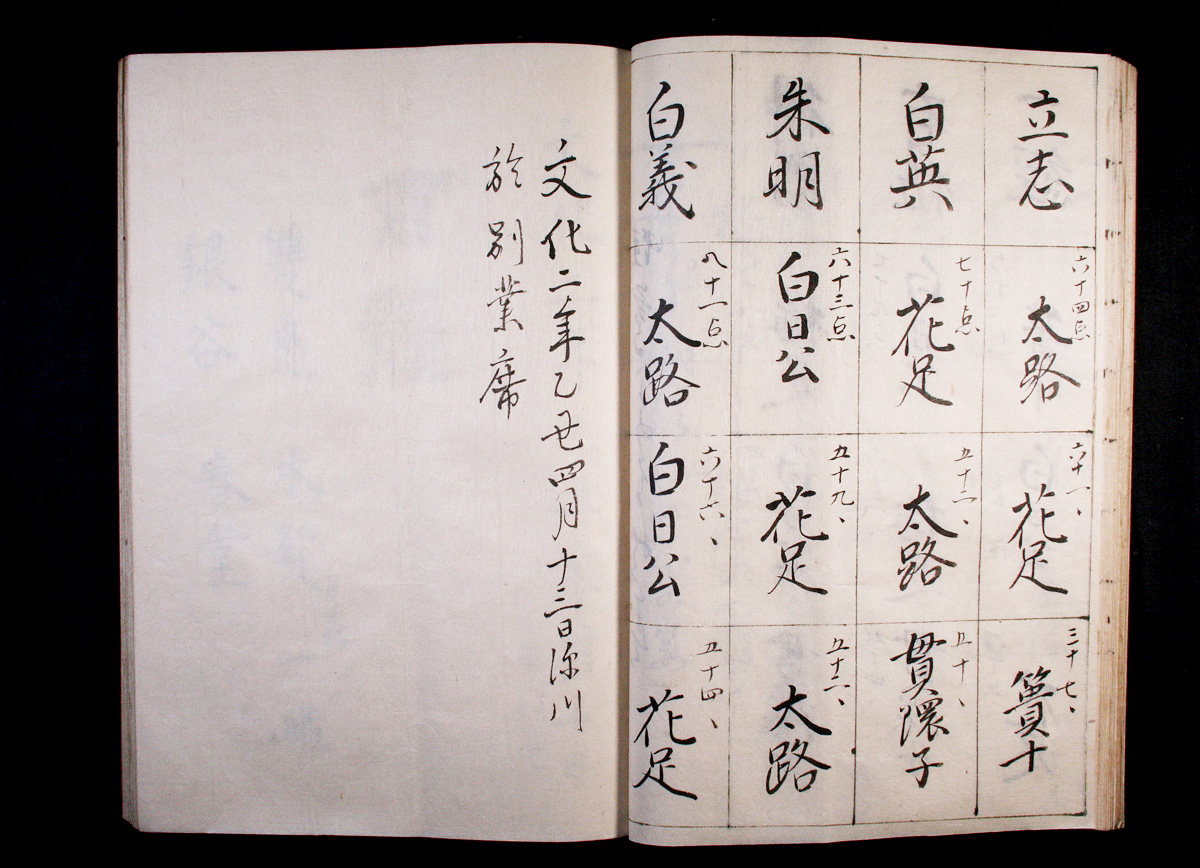 立志
六十四点
太路
六十一、
花足
三十七、
簣十
白英
七十点
花足
五十二、
太路
五十、
貫隈子
朱明
六十三点
白日公
五十九、
花足
五十二、
太路
白義
八十一点
太路
六十六、
白日公
五十四、
花足
文化二年乙丑四月十三日深川
於別業席